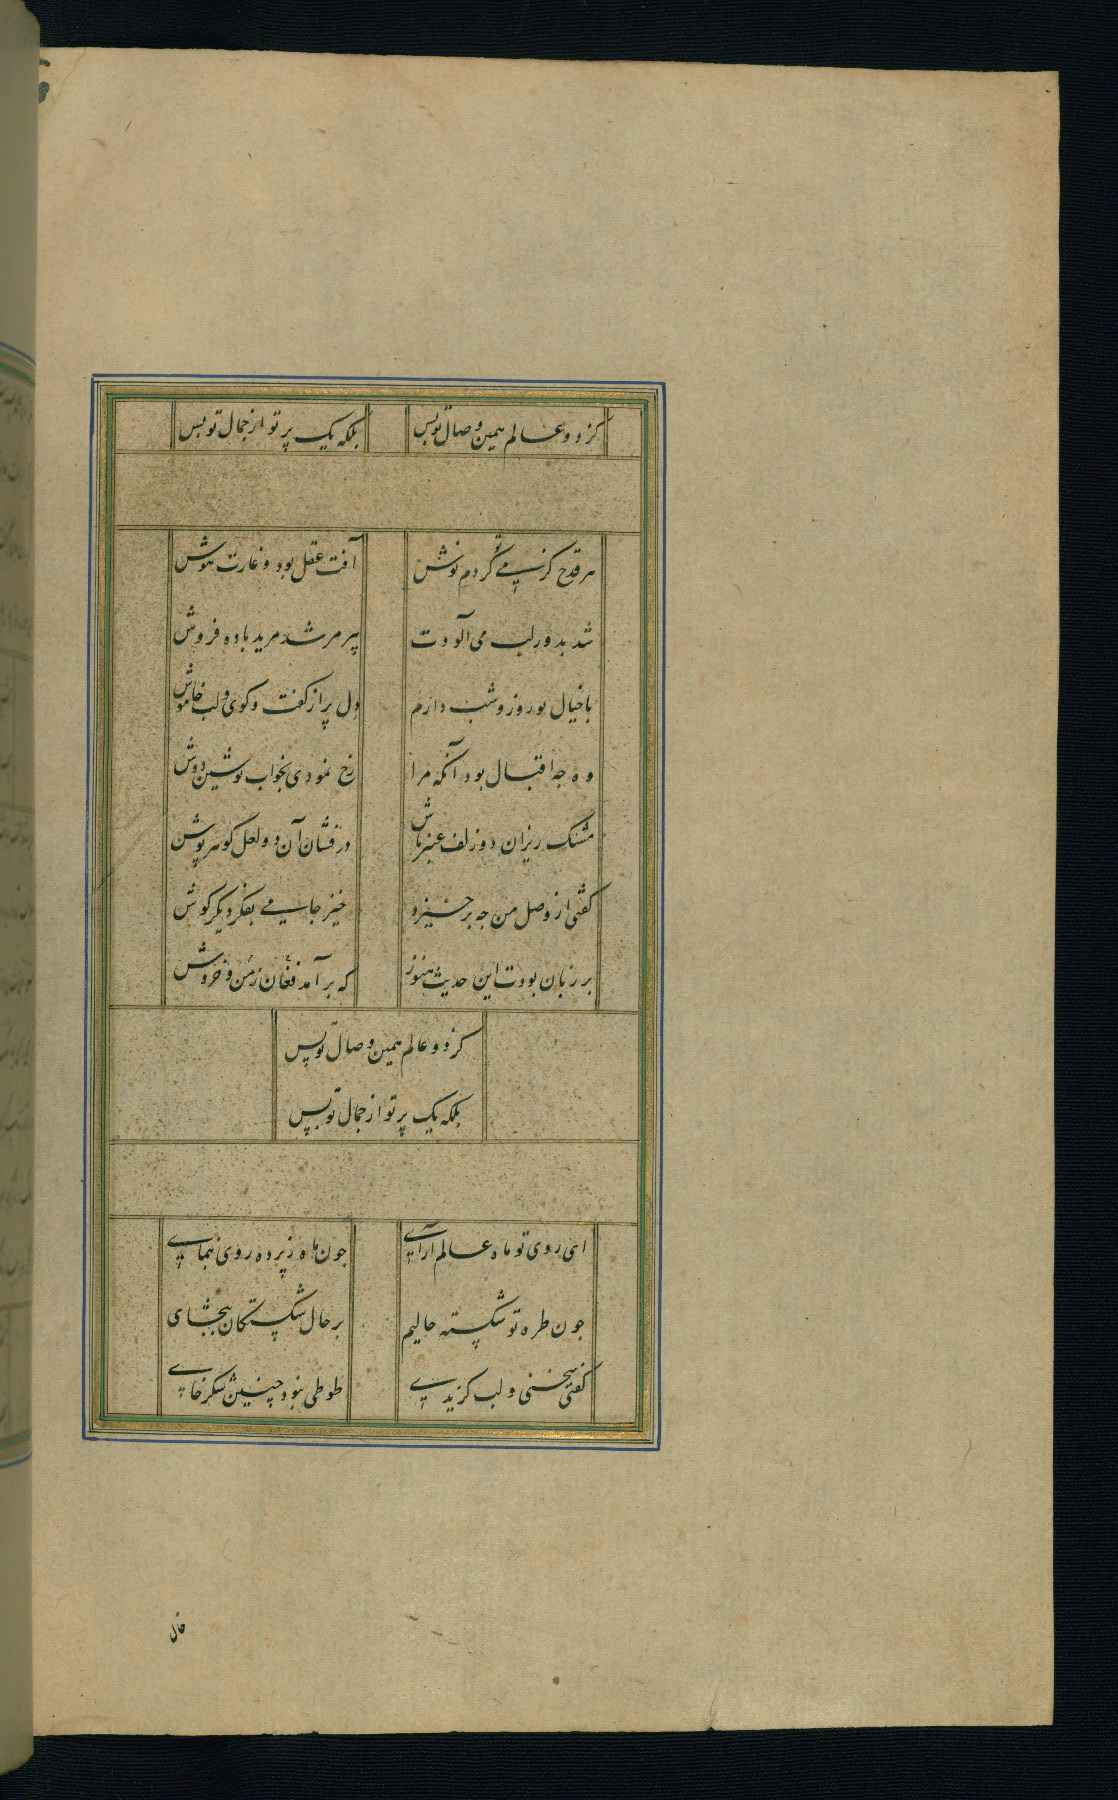 کز دو عالم همین وصال تو بس بلکه یک پرتو از جمال تو بس
هر قدح کز پی تو می کردم نوش آفت عقل بود و غارت هوش
شد بدور لب می آلودت پیر مرشد مرید باده فروش
با خیال تو روز و شب دارم دل پر از کفت و کوی و لب خاموش
وه جه اقبال بود آنکه مرا رخ نمودی بخواب نوشین دوش
مشک ریزان دو زلف عنبر پاش در فشان آن دو لعل کوهر پوش
کفتی از وصل من جه برخیزد خیز جامی بفکر دیکر کوش
بر زبان بودت این حدیث هنوز که بر آمد فغان ز من و خروش
کز دو عالم همین وصال تو بس
بلکه یک پرتو از جمال تو بس
ای روی تو ماه عالم آرای جون ماه ز پرده روی بنمای
جون طره تو شکسته حالیم بر حال شکستکان ببخشای
کفتی سخنی و لب کزیدی طوطی نبود چنین شکر خای